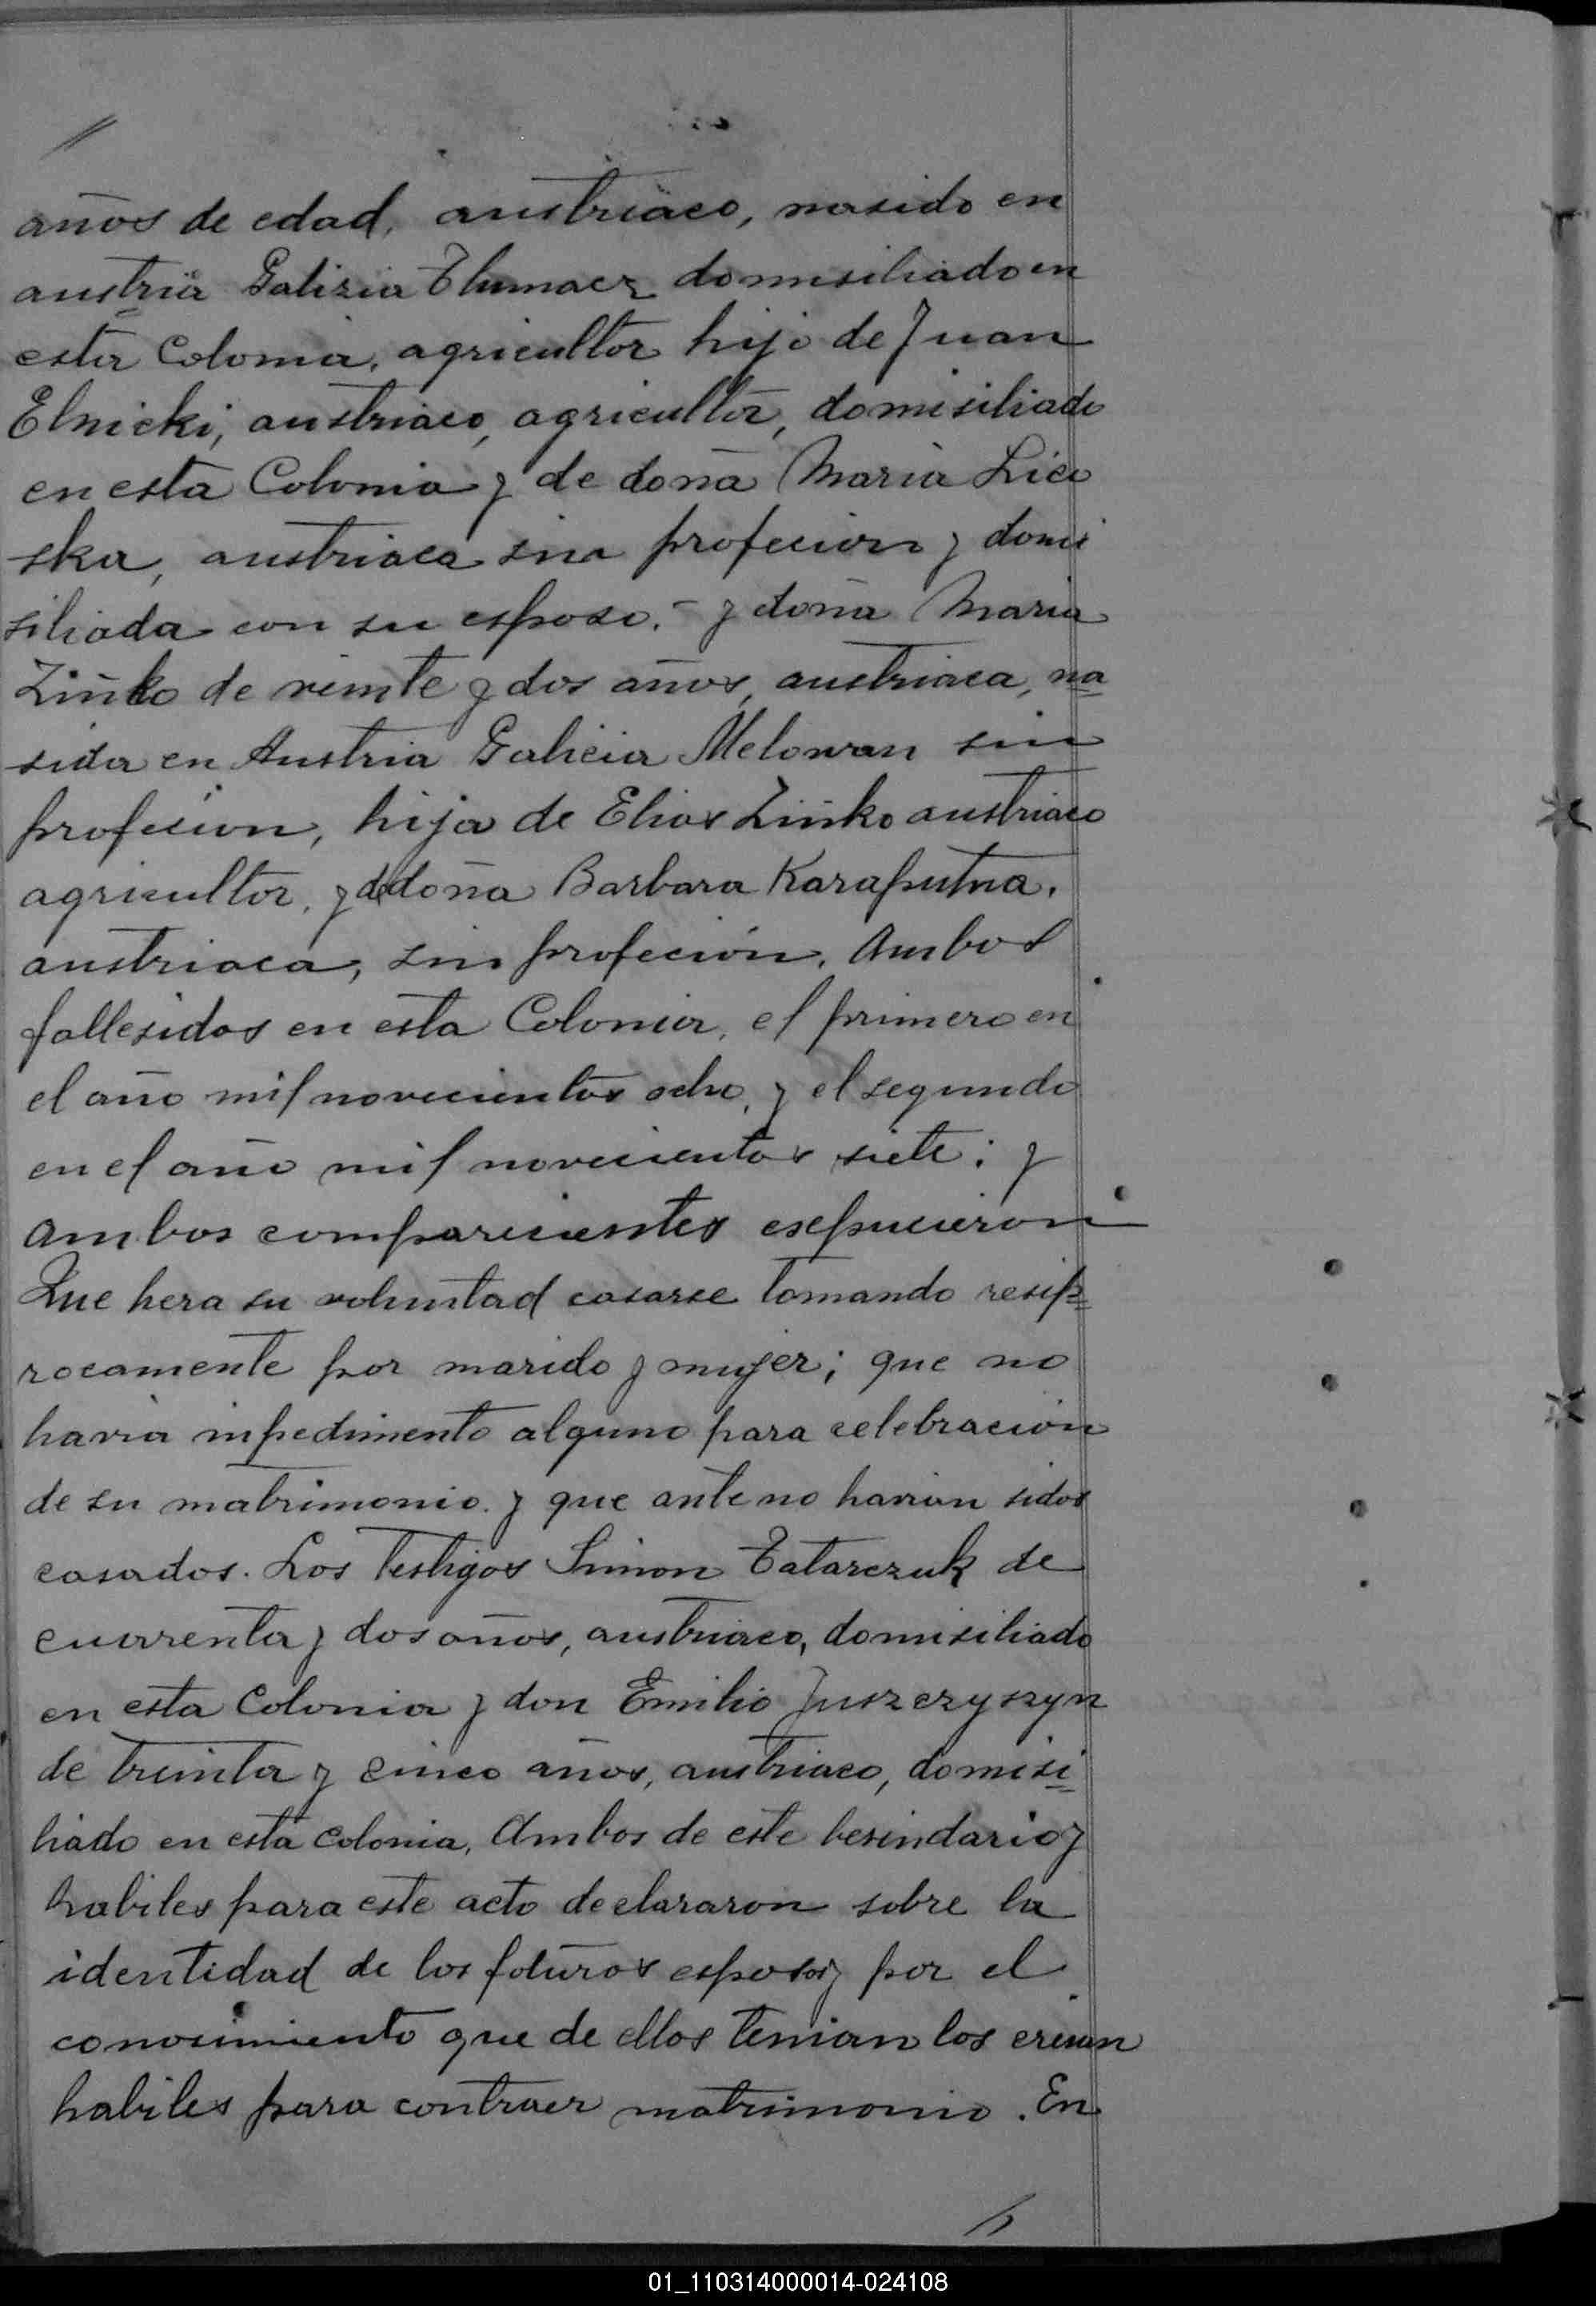 años de edad, austriaco, nasido en
austria Galizia Tlumacz domisiliado en
esta Colonia, agricultor hijo de Juan
Elnicki, austriaco, agricultor, domisiliado
en esta Colonia y de doña Maria Lico
ska, austriaca sin profecion y domi
siliada con su esposo.- y doña Maria
Zinko de veinte y dos años, austriaca, na=
sida en Austria Galicia Melowan sin
profecion, hija de Elias Zinko austriaco
agricultor, y de doña Barbara Karaputna,
austriaca, sin profeción. Ambos
fallesidos en esta Colonia, el primero en
el año mil novecientos ocho, y el segundo
en el año mil novecientos siete; y
Ambos comparecientes esepucieron
Que hera su voluntad casarse tomando resip=
rocamente por marido y mujer; que no
havia inpedimento alguno para celebracion
de su matrimonio. y que ante no havian sidos
casados. Los testigos Simon Tatarczuk de
cuarenta y dos años, austriaco, domisiliado
en esta Colonia y don Emilio Juszczyszyn
de treinta y cinco años, austriaco, domisi=
liado en esta colonia, Ambos de este besindario y
habiles para este acto declararon sobre la
identidad de los foturos esposos y por el
conosimiento que de ellos tenian los creian
habiles para contraer matrimonio. En
01_110314000014-024108